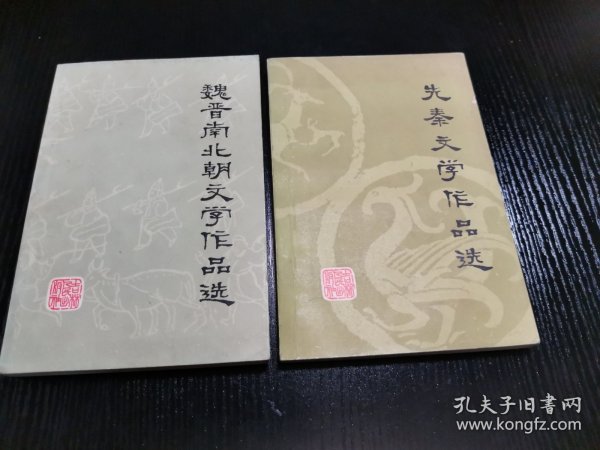 魏晋南北朝文学作品选
先秦文学作品选
孔夫子旧书网
www.kongfz.com